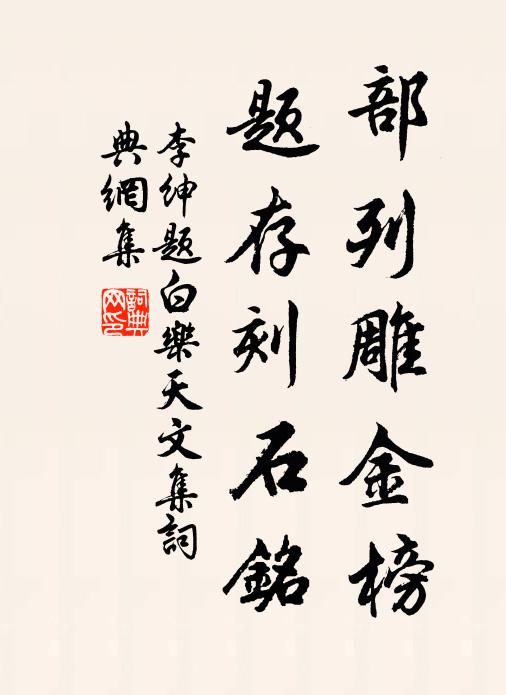 部列雕金榜
題存刻石銘
李紳題白樂天文集詞
典網集
詞典
網印